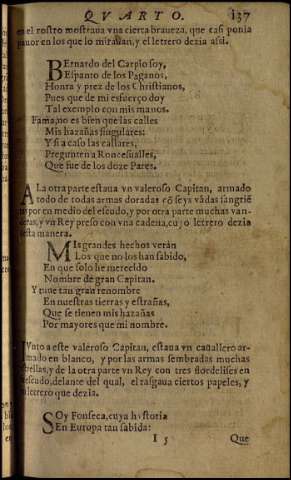 QVARTO. 137
en el rostro mostraua vna cierta braueza, que casi ponia
pauor en los que lo mirauan, y el letrero dezia assi.
Bernardo del Carpio soy,
Espanto de los Paganos,
Honra y prez de los Christianos,
Pues que de mi esfuerço doy
Tal exemplo con mis manos.
Fama, no es bien que las calles
Mis hazañas singulares:
Y si a caso las callares,
Pregunten a Roncesualles,
Que fue de los doze Pares.
A La otra parte estaua vn valeroso Capitan, armado
todo de todas armas doradas cõ seys vãdas sangriẽ
por en medio del escudo, y por otra parte muchas van-
deras, y vn Rey preso con vna cadena, cuyo letrero dezia
esta manera.
Mis grandes hechos verán
Los que no los han sabido,
En que solo he merecido
Nombre de gran Capitan.
Y tuue tan gran renombre
En nuestras tierras y estrañas,
Que se tienen mis hazañas
Por mayores que mi nombre.
IVnto a este valeroso Capitan, estaua vn cauallero ar-
mado en blanco, y por las armas sembradas muchas
estrellas, y de la otra parte vn Rey con tres flordelises en
escudo, delante del qual, el rasgaua ciertos papeles, y
letrero que dezia.
SOy Fonseca, cuya historia
En Europa tan sabida:
I 5 Que